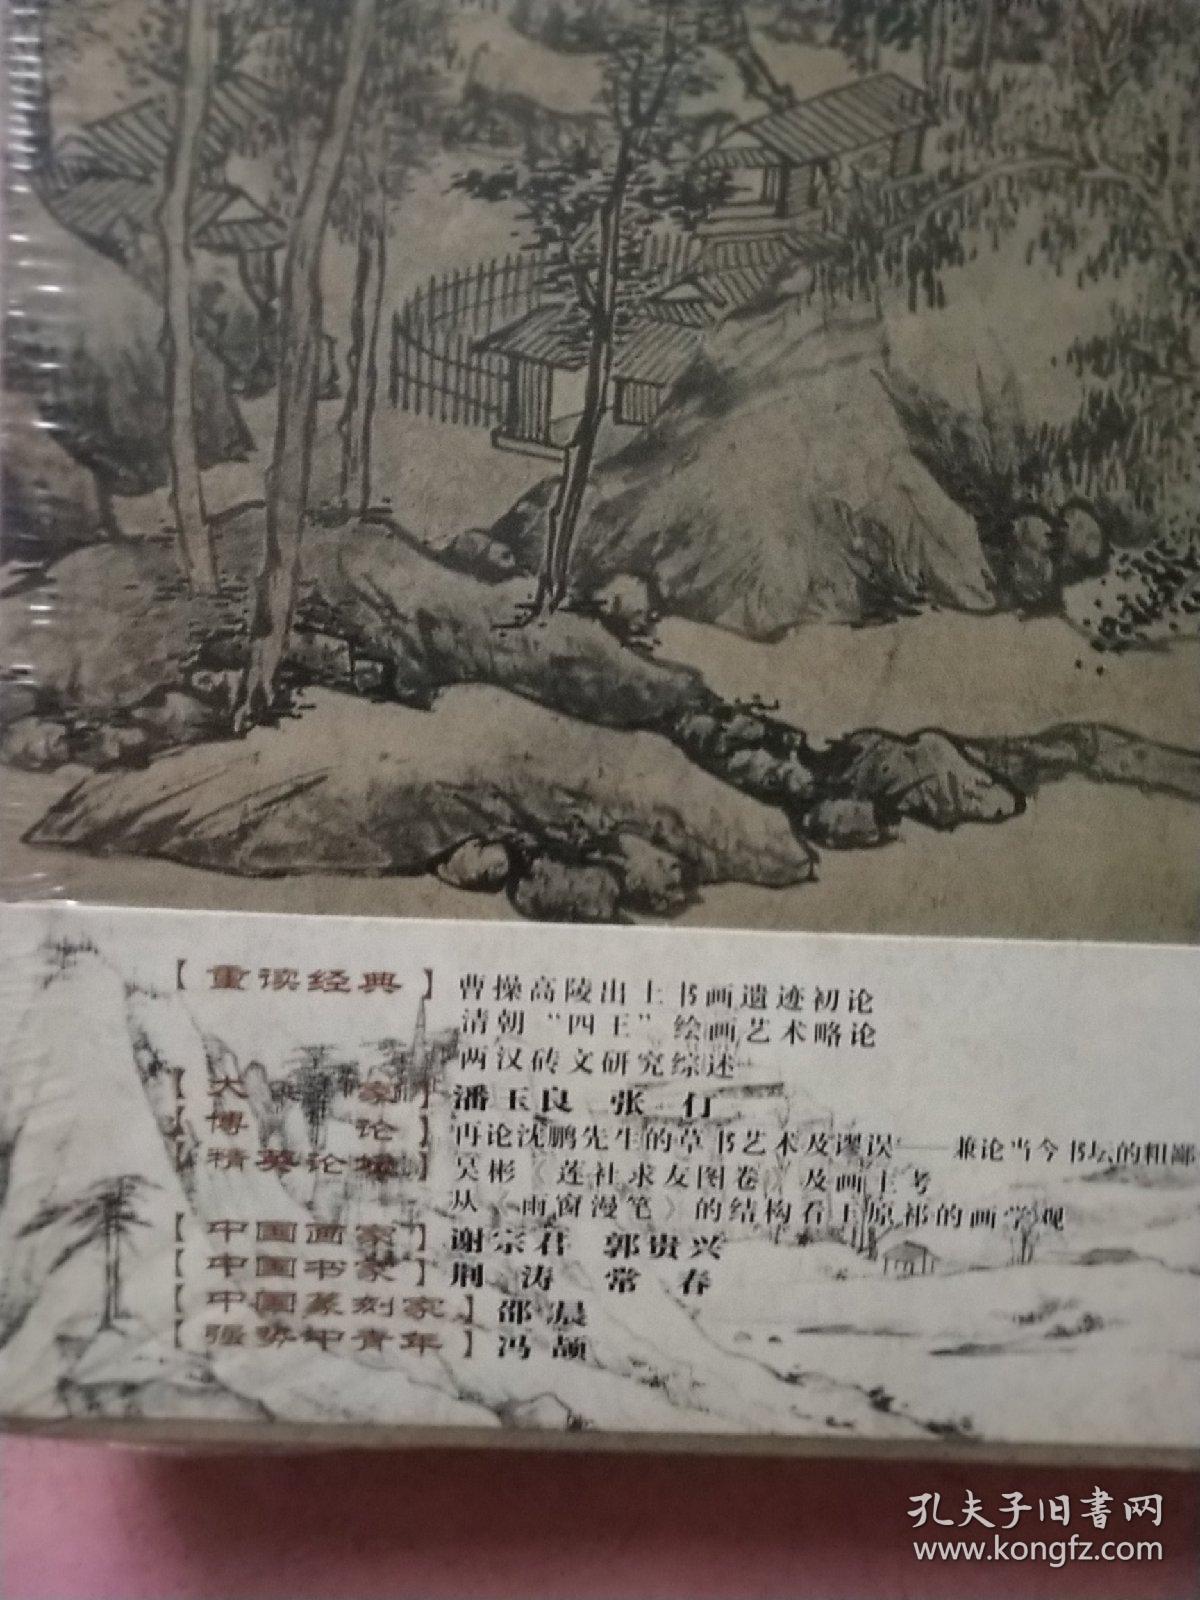 【重读经典】曹操高陵出土书画遗迹初论
清朝“四王”绘画艺术略论
两汉砖文研究综述
【大 家】潘玉良 张仃
【博 论】再论沈鹏先生的草书艺术及谬误——兼论当今书坛的粗鄙
【精英论坛】吴彬《莲社求友图卷》及画主考
从《雨窗漫笔》的结构看王原祁的画学观
【中国画家】谢宗君 郭贵兴
【中国书家】荆 涛 常 春
【中国篆刻家】邵晨
【强势中青年】冯颉
孔夫子旧书网
www.kongfz.com